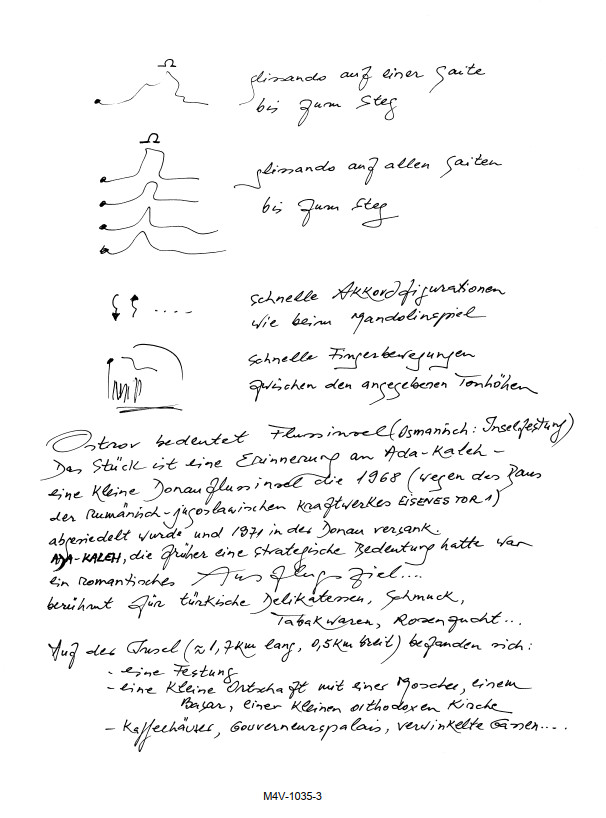 glissando auf einer Saite
bis zum Steg
glissando auf allen Saiten
bis zum Steg
schnelle Akkordfigurationen
wie beim Mandolinspiel
schnelle Fingerbewegungen
zwischen den angegebenen Tonhöhen
Ostrov bedeutet Flussinsel (Osmanisch: Inselfestung)
Das Stück ist eine Erinnerung an Ada-Kaleh –
eine kleine Donauflussinsel die 1968 (wegen des Baus
der rumänisch-jugoslawischen Kraftwerkes EISENES TOR 1)
abgesiedelt wurde und 1971 in der Donau versank.
ADA-KALEH, die früher eine strategische Bedeutung hatte war
ein romantisches Ausflugsziel....
berühmt für türkische Delikatessen, Schmuck,
Tabakwaren, Rosenzucht...
Auf der Insel (≈1,7Km lang, 0,5Km breit) befanden sich:
- eine Festung
- eine kleine Ortschaft mit einer Moschee, einem
Basar, einer kleinen orthodoxen Kirche
- Kaffeehäuser, Gouverneurspalais, verwinkelte Gassen....
M4V-1035-3